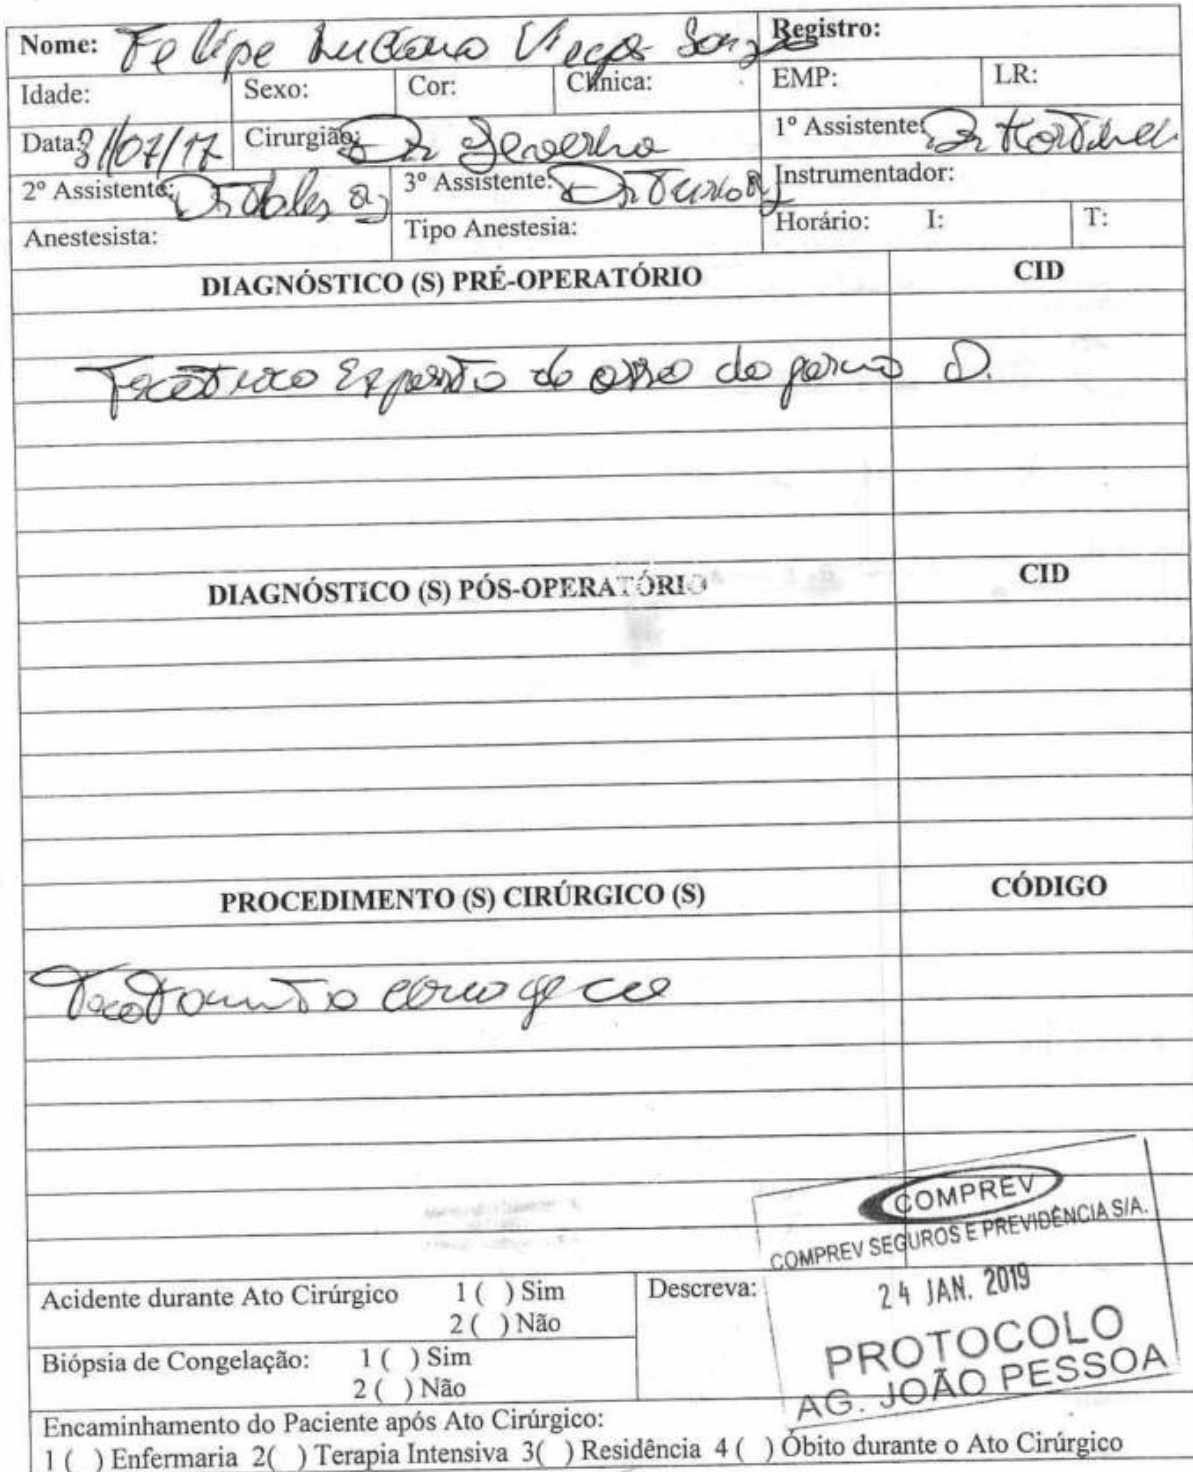 Nome: Felipe Luciano Viegas Souza Registro:
Idade: Sexo: Cor: Clínica: EMP: LR:
Data: 31/07/17 Cirurgião: Dr Severino 1º Assistente: Dr
2º Assistente: Dr Tales 3º Assistente: Dr Instrumentador:
Anestesista: Tipo Anestesia: Horário: I: T:
DIAGNÓSTICO (S) PRÉ-OPERATÓRIO CID
Exposto do osso da perna D.
DIAGNÓSTICO (S) PÓS-OPERATÓRIO CID
PROCEDIMENTO (S) CIRÚRGICO (S) CÓDIGO
Tratamento cirurgico
COMPREV
COMPREV SEGUROS E PREVIDÊNCIA S/A.
24 JAN. 2019
PROTOCOLO
AG. JOÃO PESSOA
Acidente durante Ato Cirúrgico 1 ( ) Sim Descreva:
2 ( ) Não
Biópsia de Congelação: 1 ( ) Sim
2 ( ) Não
Encaminhamento do Paciente após Ato Cirúrgico:
1 ( ) Enfermaria 2( ) Terapia Intensiva 3( ) Residência 4 ( ) Óbito durante o Ato Cirúrgico